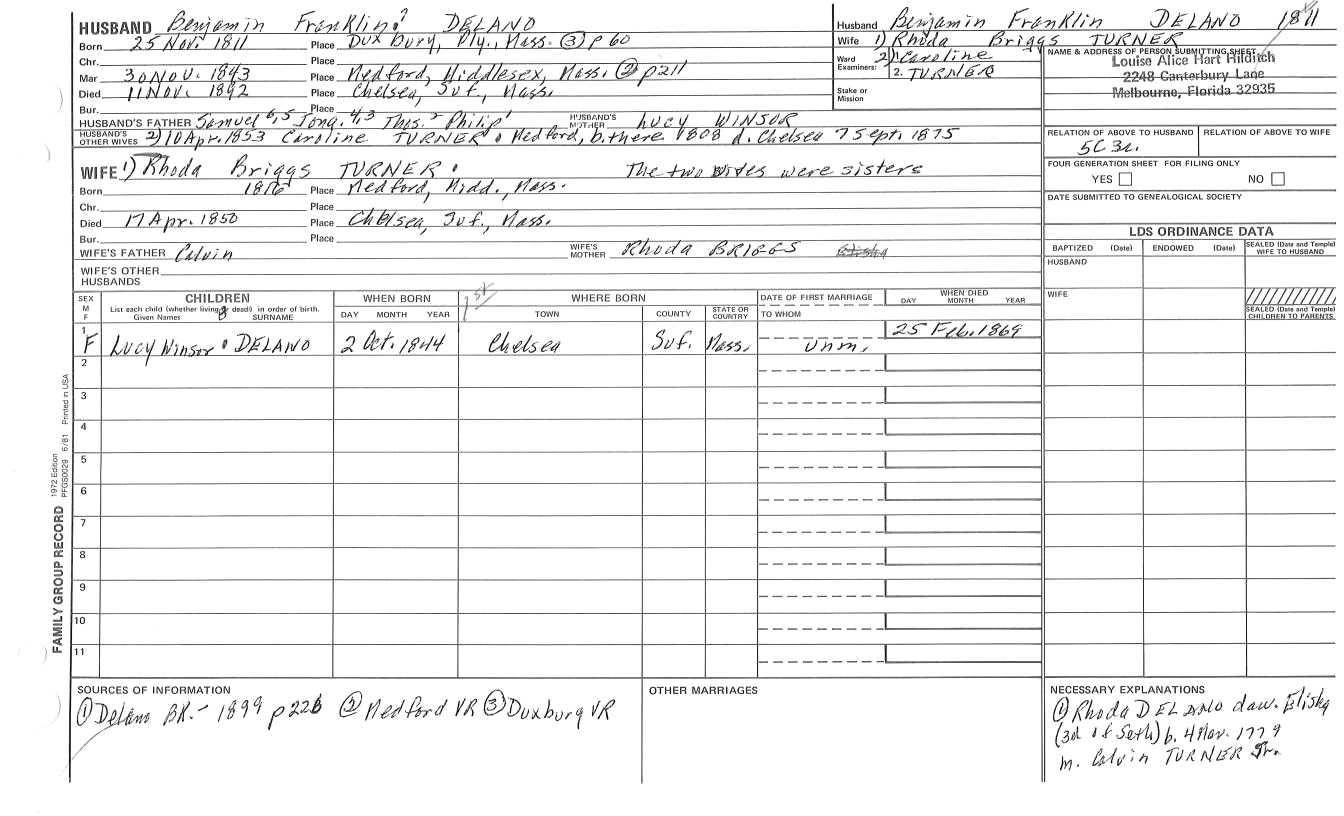 HUSBAND Benjamin Franklin 7 DELANO
Born 25 Nov. 1811 Place Duxbury, Ply., Mass. (3) p 60
Chr. Place
Mar 30 NOV. 1843 Place Medford, Middlesex, Mass. (2) p211
Died 11 NOV. 1892 Place Chelsea, Suf., Mass.
Bur. Place
HUSBAND'S FATHER Samuel 6,5 Jona. 4,3 Thos. 2 Philip 1 HUSBAND'S MOTHER LUCY WINSOR
HUSBAND'S OTHER WIVES 2) 10 Apr. 1853 Caroline TURNER Medford, b. there 1808 d. Chelsea 7 Sept. 1875
WIFE 1) Rhoda Briggs TURNER The two wives were sisters
Born 1816 Place Medford, Midd., Mass.
Chr. Place
Died 17 Apr. 1850 Place Chelsea, Suf., Mass.
Bur. Place
WIFE'S FATHER Calvin WIFE'S MOTHER Rhoda BRIGGS Elisha
WIFE'S OTHER HUSBANDS
Husband Benjamin Franklin DELANO 1811
Wife 1) Rhoda Briggs TURNER
Ward 2) Caroline
Examiners: 2. TURNER
Stake or
Mission
NAME & ADDRESS OF PERSON SUBMITTING SHEET
Louise Alice Hart Hilditch
2248 Canterbury Lane
Melbourne, Florida 32935
RELATION OF ABOVE TO HUSBAND RELATION OF ABOVE TO WIFE
5C 3r.
FOUR GENERATION SHEET FOR FILING ONLY
YES NO
DATE SUBMITTED TO GENEALOGICAL SOCIETY
LDS ORDINANCE DATA
BAPTIZED (Date) ENDOWED (Date) SEALED (Date and Temple) WIFE TO HUSBAND
HUSBAND
WIFE
SEALED (Date and Temple) CHILDREN TO PARENTS
SEX M F CHILDREN WHEN BORN 1st WHERE BORN DATE OF FIRST MARRIAGE WHEN DIED
List each child (whether living or dead) in order of birth.
Given Names 8 SURNAME DAY MONTH YEAR TOWN COUNTY STATE OR COUNTRY TO WHOM DAY MONTH YEAR
1 F Lucy Winsor DELANO 2 Oct. 1844 Chelsea Suf. Mass. Unm. 25 Feb. 1869
2
3
4
5
6
7
8
9
10
11
FAMILY GROUP RECORD 1972 Edition PFGS0029 6/81 Printed in USA
SOURCES OF INFORMATION
(1) Delano BK. - 1899 p226 (2) Medford VR (3) Duxbury VR
OTHER MARRIAGES
NECESSARY EXPLANATIONS
(1) Rhoda DELANO dau. Elisha
(3d of Seth) b. 4 Mar. 1779
m. Calvin TURNER Jr.